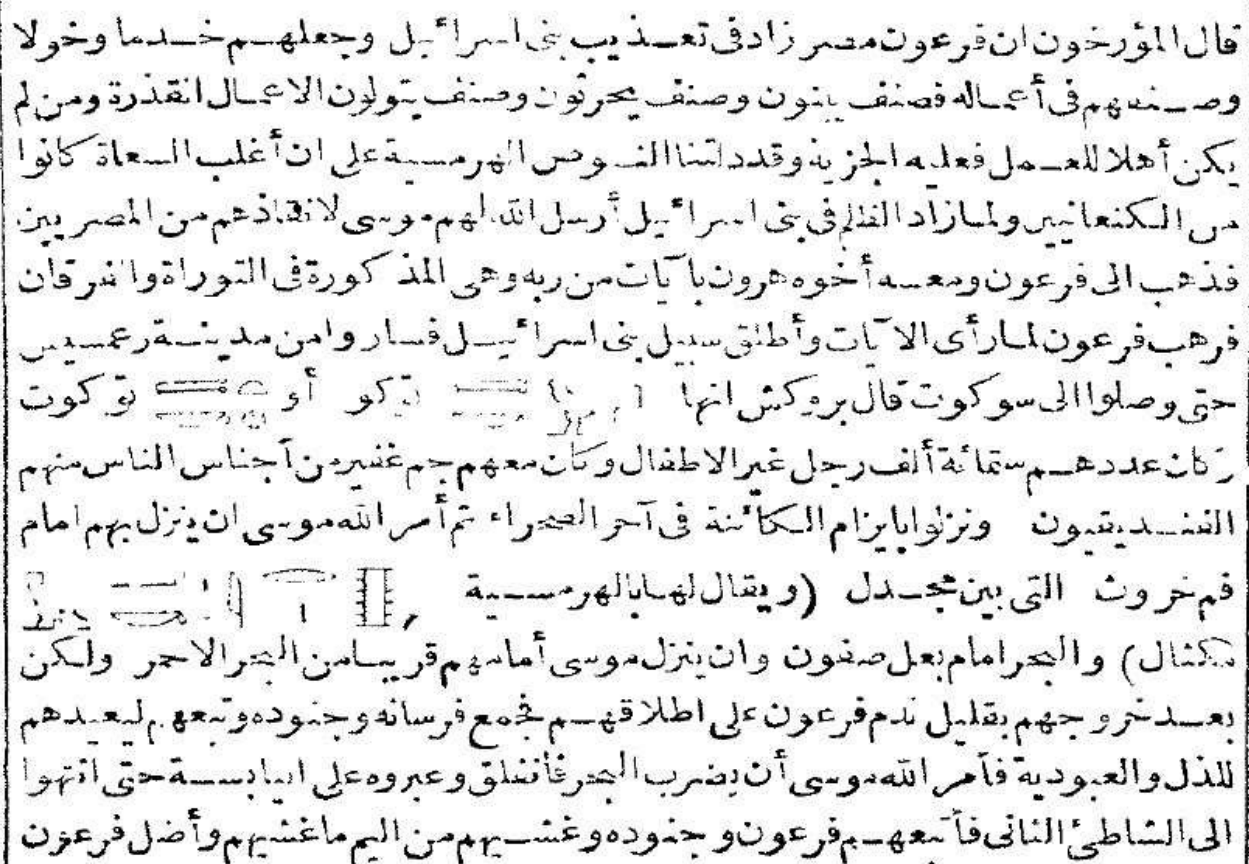 قال المؤرخون ان فرعون مصر زاد فى تعذيب بنى اسرائيل وجعلهم خدما وخولا
وصنفهم فى أعماله فصنف يبنون وصنف يحرثون وصنف يتولون الاعمال القذرة ومن لم
يكن أهلا للعمل فعليه الجزية وقد دلتنا النصوص الهرمسية على ان أغلب السعاة كانوا
من الكنعانيين ولما زاد الظلم فى بنى اسرائيل أرسل الله لهم موسى لانقاذهم من المصريين
فذهب الى فرعون ومعه أخوه هرون با آيات من ربه وهى المذكورة فى التوراة والفرقان
فرهب فرعون لما رأى الآيات وأطلق سبيل بنى اسرائيل فساروا من مدينة رعمسيس
حتى وصلوا الى سوكوت قال بروكش انها تكو أو توكوت
وكان عددهم ستمائة ألف رجل غير الاطفال وكان معهم جم غفير من أجناس الناس منهم
الفنديقيون ونزلوا بايزام الكائنة فى آخر الصحراء ثم أمر الله موسى ان ينزل بهم امام
فم خروث التى بين مجدل (ويقال لها بالهرمسية
مكتال) والبحر امام بعل صفون وان ينزل موسى أمامهم قريبا من البحر الاحمر ولكن
بعد خروجهم بقليل ندم فرعون على اطلاقهم فجمع فرسانه وجنوده وتبعهم ليعيدهم
للذل والعبودية فأمر الله موسى أن يضرب البحر فأنفلق وعبروه على اليابسة حتى انتهوا
الى الشاطئ الثانى فأتبعهم فرعون وجنوده وغشيهم من اليم ماغشيهم وأضل فرعون